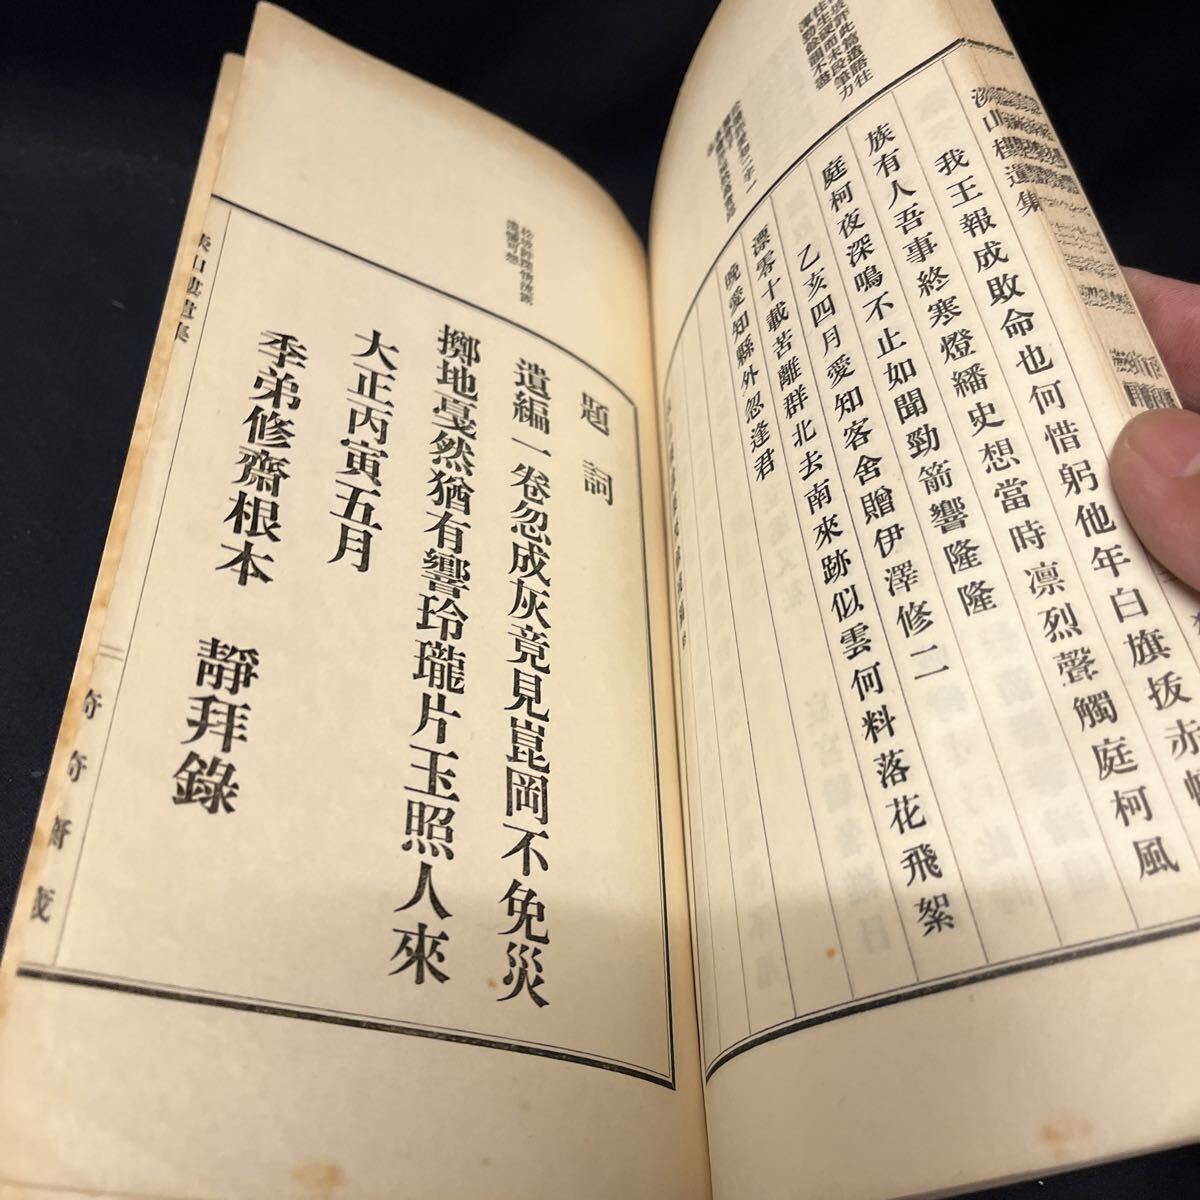 山樓遺集
年白旗拔赤幟
我王報成敗命也何惜躬他
族有人吾事終寒燈繙史想當時凛烈聲觸庭柯風
庭柯夜深鳴不止如聞勁箭響隆隆
乙亥四月愛知客舍贈伊澤修二
漂零十載苦離群北去南來跡似雲何料落花飛絮
晩愛知縣外忽逢君
題詞
遺編一卷忽成灰竟見崑岡不免災
擲地戞然猶有響玲瓏片玉照人來
大正丙寅五月
季弟修齋根本 靜拜錄
山樓遺集
奇奇齋